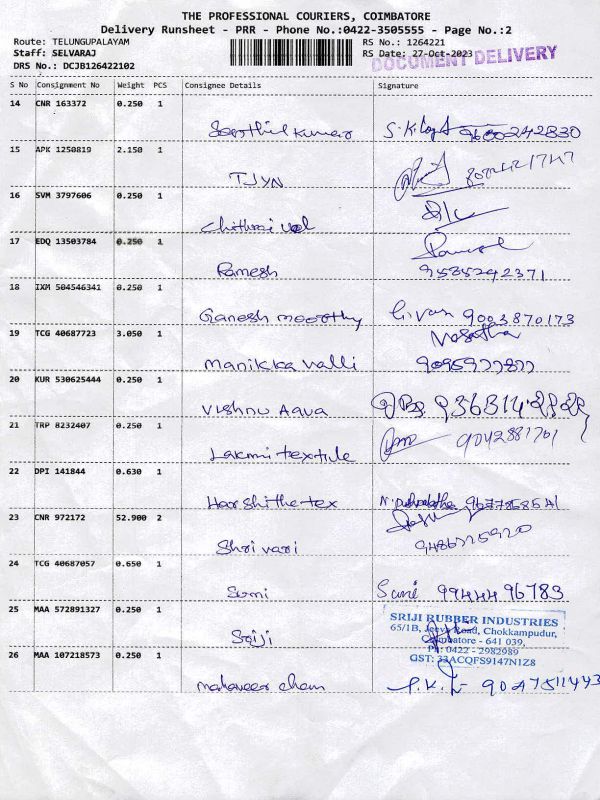 THE PROFESSIONAL COURIERS, COIMBATORE
Delivery Runsheet - PRR - Phone No.:0422-3505555 - Page No.:2
Route: TELUNGUPALAYAM RS No.: 1264221
Staff: SELVARAJ RS Date: 27-Oct-2023
DOCUMENT DELIVERY
DRS No.: DCJB126422102
S No Consignment No Weight PCS Consignee Details Signature
14 CNR 163372 0.250 1
Senthil kumar
15 APK 1250819 2.150 1
TJYN
16 SVM 3797606 0.250 1
Chithrai vel
17 EDQ 13503784 0.250 1
Ramesh 9535242371
18 IXM 504546341 0.250 1
Ganesh moorthy 9003870173
19 TCG 40687723 3.050 1
manikka valli
20 KUR 530625444 0.250 1
Vishnu Aqua
21 TRP 8232407 0.250 1
9042881701
Lakmi textile
22 DPI 141844 0.630 1
Harshithe tex
23 CNR 972172 52.900 2
Shri vari
24 TCG 40687057 0.650 1
Sumi 99444 96783
25 MAA 572891327 0.250 1
SRIJI RUBBER INDUSTRIES
65/1B, Jeeva Road, Chokkampudur,
Coimbatore - 641 039,
Ph: 0422 - 2982989
GST: 33ACQFS9147N1Z8
Sriji
26 MAA 107218573 0.250 1
mahaveer chem 9047511443